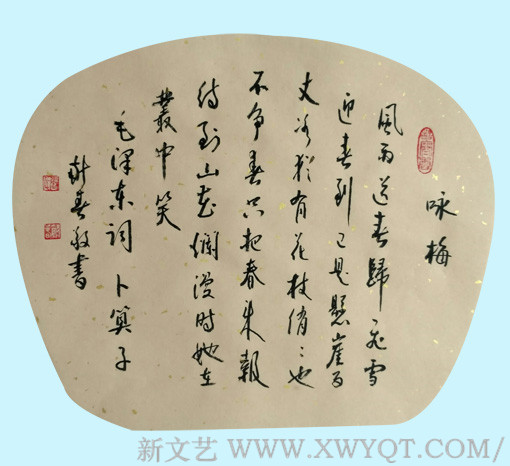 咏梅
風雨送春歸飞雪
迎春到已是懸崖百
丈冰犹有花枝俏〻也
不争春只把春来報
待到山花爛漫時她在
叢中笑
毛泽东词 卜算子
春敬書
新文艺 WWW.XWYQT.COM/